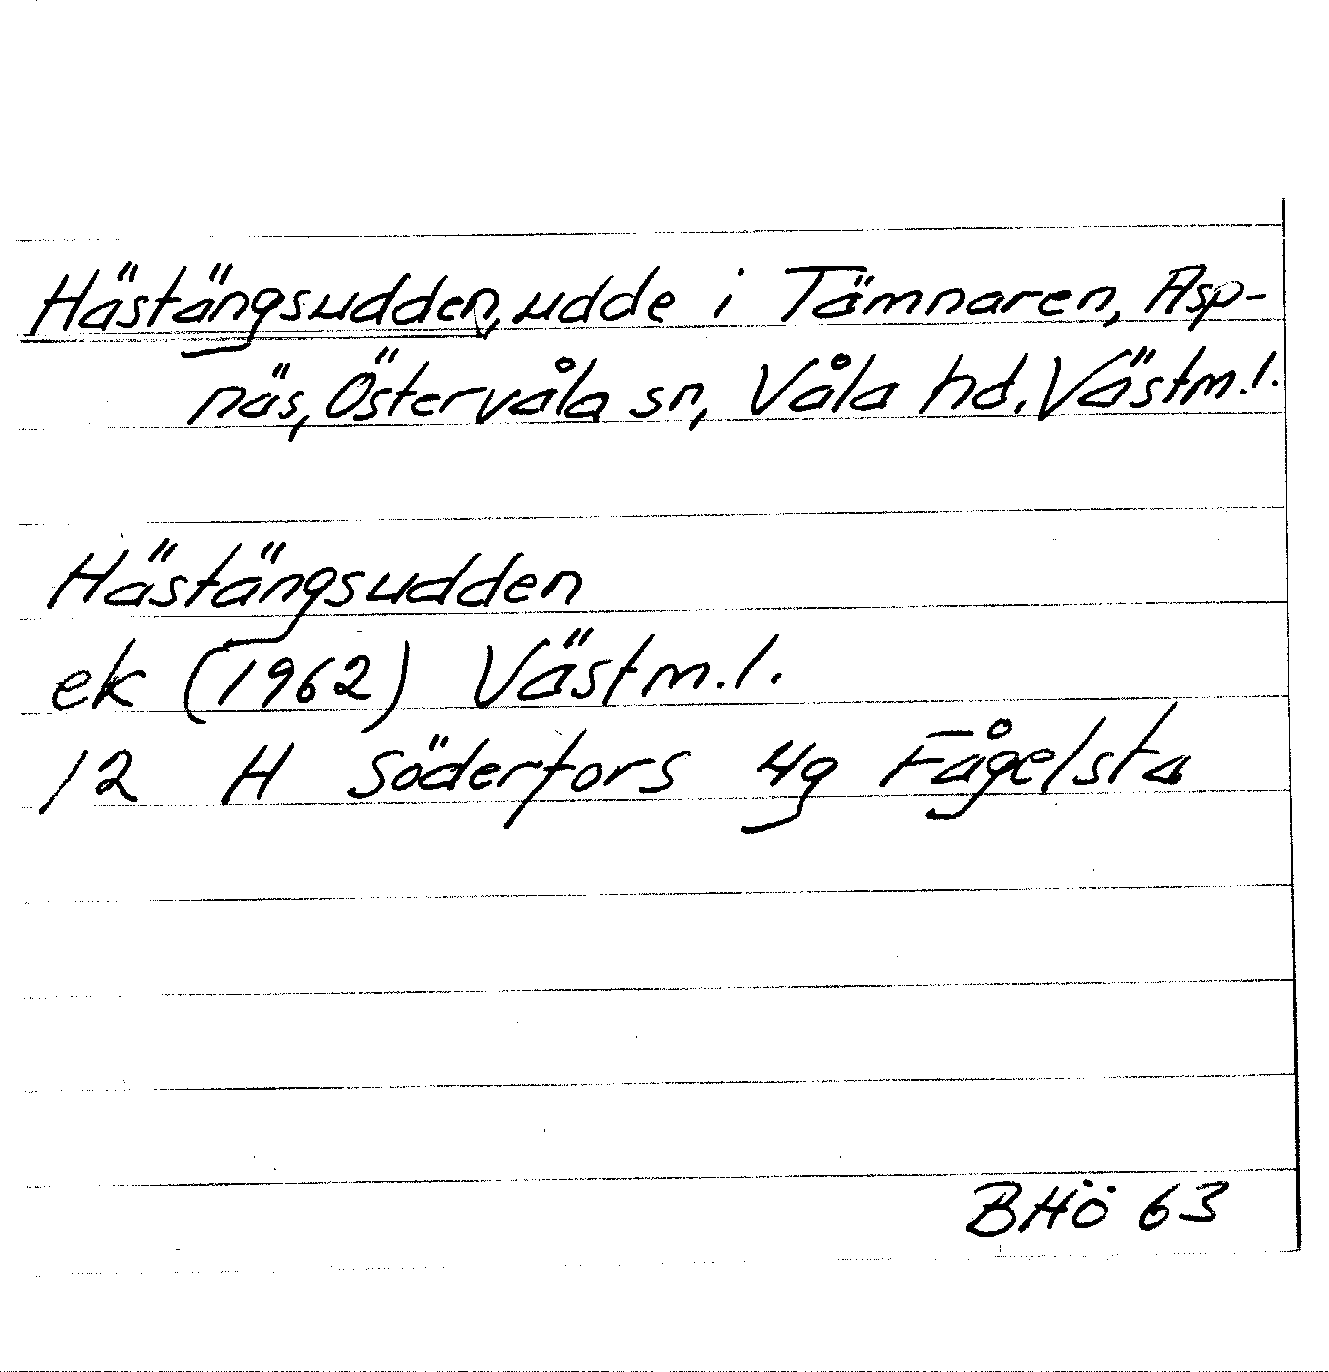 Hästängsudden, udde i Tämnaren, Asp-
näs, Östervåla sn, Våla hd. Västm.l.
Hästängsudden
ek (1962) Västm.l.
12 H Söderfors 4g Fågelsta
BHÖ 63